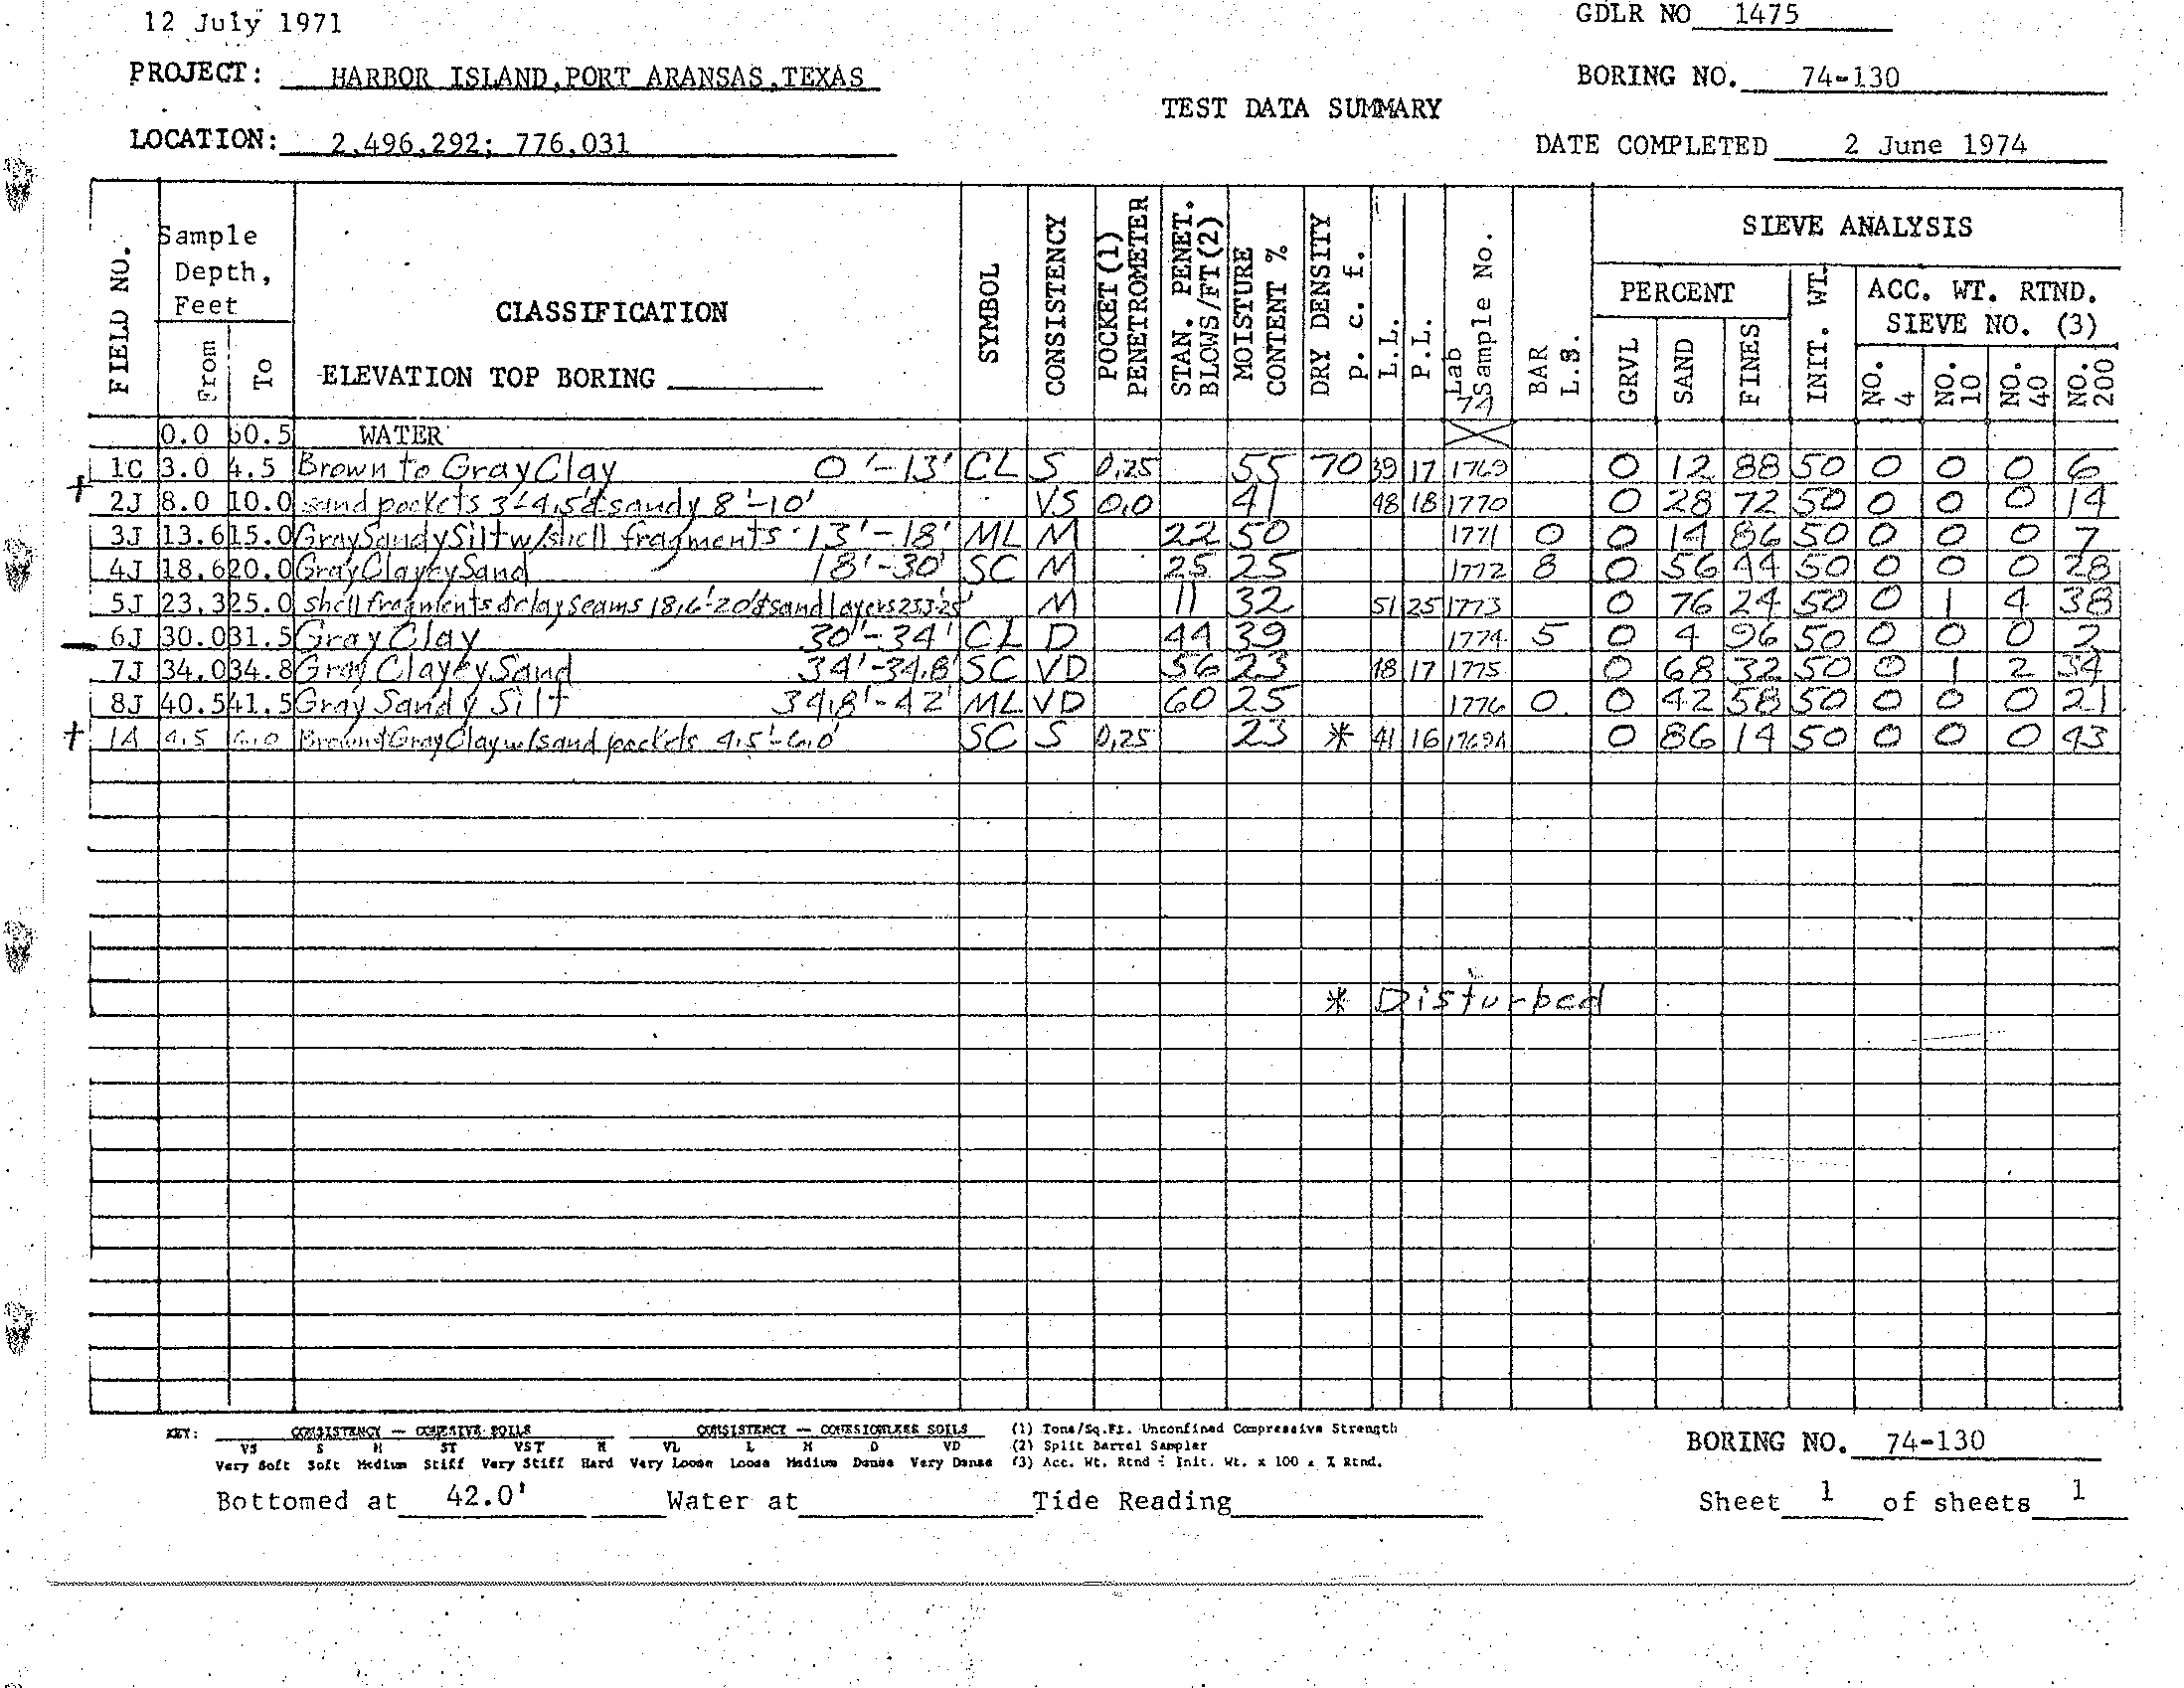 12 July 1971
GDLR NO 1475
PROJECT: HARBOR ISLAND,PORT ARANSAS,TEXAS
BORING NO. 74-130
TEST DATA SUMMARY
LOCATION: 2,496,292; 776,031
DATE COMPLETED 2 June 1974
FIELD NO.
Sample Depth, Feet
From
To
CLASSIFICATION
ELEVATION TOP BORING
SYMBOL
CONSISTENCY
POCKET (1) PENETROMETER
STAN. PENET. BLOWS/FT(2)
MOISTURE CONTENT %
DRY DENSITY P. c. f.
L.L.
P.L.
Lab Sample No.
74
BAR L.S.
SIEVE ANALYSIS
PERCENT
GRVL
SAND
FINES
INIT. WT.
ACC. WT. RTND. SIEVE NO. (3)
NO. 4
NO. 10
NO. 40
NO. 200
0.0 60.5 WATER
1C 3.0 4.5 Brown to Gray Clay 0'-13' CL S 0.25 55 70 39 17 1769 0 12 88 50 0 0 0 6
+
2J 8.0 10.0 sand pockets 3'-4.5' & sandy 8'-10' VS 0.0 41 48 18 1770 0 28 72 50 0 0 0 14
3J 13.6 15.0 Gray Sandy Silt w/shell fragments 13'-18' ML M 22 50 1771 0 0 14 86 50 0 0 0 7
4J 18.6 20.0 Gray Clayey Sand 18'-30' SC M 25 25 1772 8 0 56 44 50 0 0 0 28
5J 23.3 25.0 shell fragments & clay seams 18.6'-20' & sand layers 23.3'-25' M 11 32 51 25 1773 0 76 24 50 0 1 4 38
6J 30.0 31.5 Gray Clay 30'-34' CL D 44 39 1774 5 0 4 96 50 0 0 0 2
7J 34.0 34.8 Gray Clayey Sand 34'-34.8' SC VD 56 23 18 17 1775 0 68 32 50 0 1 2 34
8J 40.5 41.5 Gray Sandy Silt 34.8'-42' ML VD 60 25 1776 0 0 42 58 50 0 0 0 21
+ 1A 4.5 6.0 Brown & Gray Clay w/sand pockets 4.5'-6.0' SC S 0.25 23 * 41 16 1769A 0 86 14 50 0 0 0 43
* Disturbed
KEY: CONSISTENCY — COHESIVE SOILS CONSISTENCY — COHESIONLESS SOILS (1) Tons/Sq.Ft. Unconfined Compressive Strength
VS S M ST VST H VL L M D VD (2) Split Barrel Sampler
Very Soft Soft Medium Stiff Very Stiff Hard Very Loose Loose Medium Dense Very Dense (3) Acc. Wt. Rtnd ÷ Init. Wt. x 100 = % Rtnd.
BORING NO. 74-130
Bottomed at 42.0' Water at Tide Reading
Sheet 1 of sheets 1